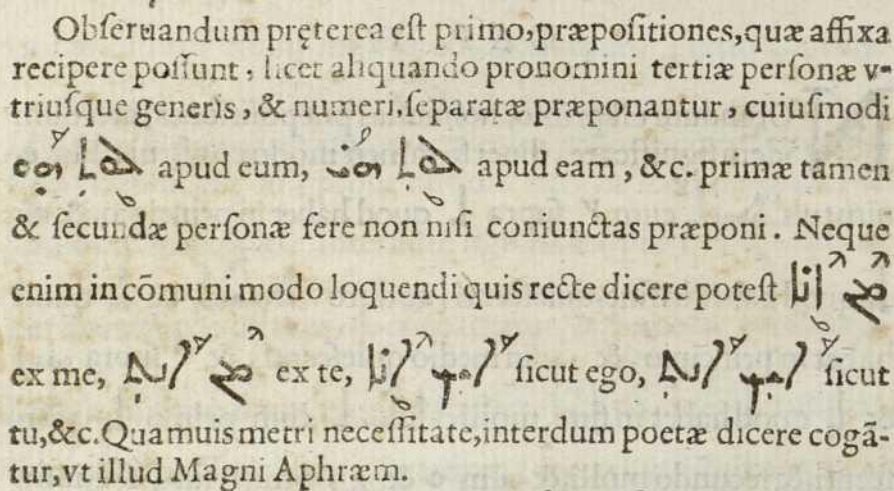 Obſeruandum pręterea eſt primo,præpoſitiones,quæ affixa
recipere poſſunt, licet aliquando pronomini tertiæ perſonæ v-
triuſque generis, & numeri,ſeparatæ præponantur, cuiuſmodi
ܠܘܬ ܗܘ apud eum, ܠܘܬ ܗܝ apud eam, &c. primæ tamen
& ſecundæ perſonæ fere non niſi coniunctas præponi. Neque
enim in cōmuni modo loquendi quis recte dicere poteſt ܡܢ ܐܢܐ
ex me, ܡܢ ܐܢܬ ex te, ܐܝܟ ܐܢܐ ſicut ego, ܐܝܟ ܐܢܬ ſicut
tu,&c.Quamuis metri neceſſitate,interdum poetæ dicere cogā-
tur,vt illud Magni Aphræm.